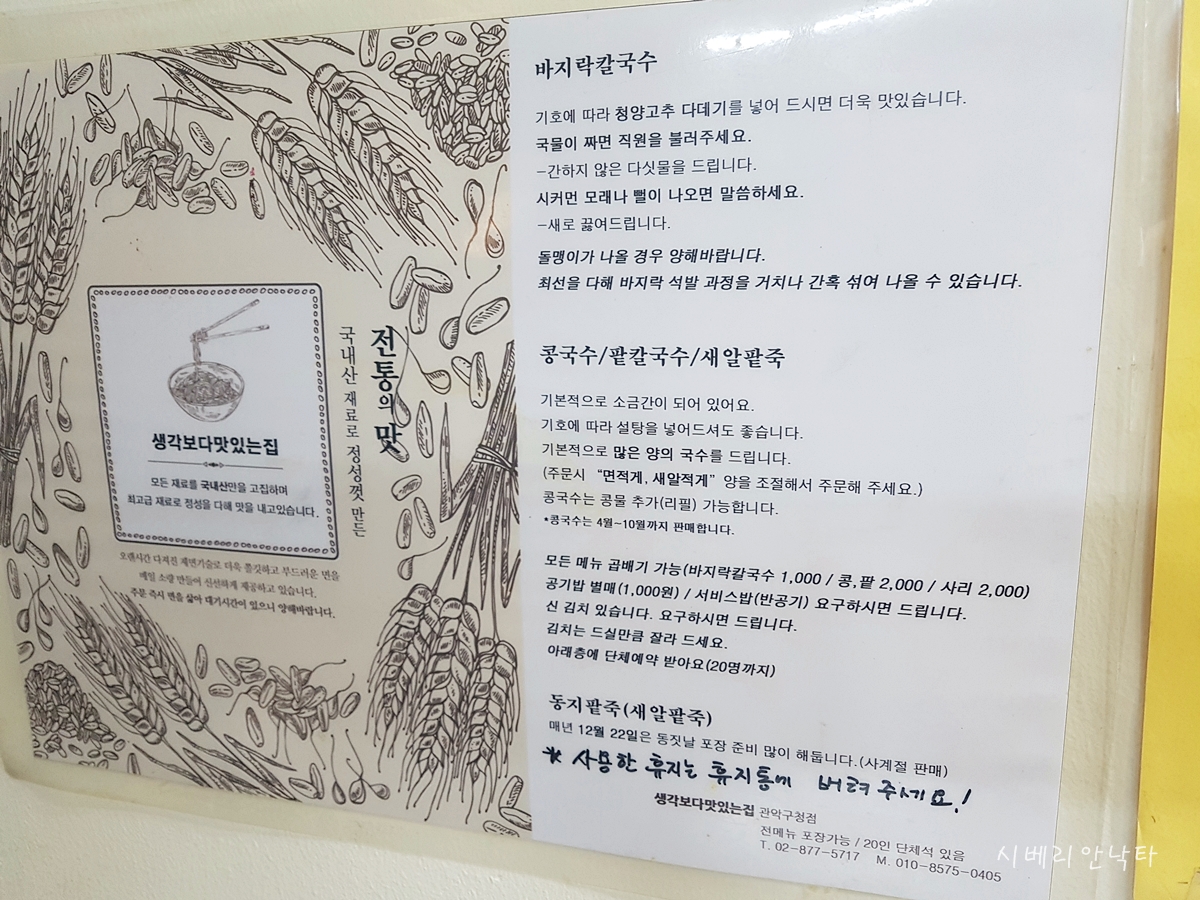 전통의 맛
국내산 재료로 정성껏 만든
생각보다맛있는집
모든 재료를 국내산만을 고집하며
최고급 재료로 정성을 다해 맛을 내고있습니다.
오랜시간 다져진 제면기술로 더욱 쫄깃하고 부드러운 면을
매일 소량 만들어 신선하게 제공하고 있습니다.
주문 즉시 면을 삶아 대기시간이 있으니 양해바랍니다.
바지락칼국수
기호에 따라 청양고추 다데기를 넣어 드시면 더욱 맛있습니다.
국물이 짜면 직원을 불러주세요.
-간하지 않은 다싯물을 드립니다.
시커먼 모래나 뻘이 나오면 말씀하세요.
-새로 끓여드립니다.
돌맹이가 나올 경우 양해바랍니다.
최선을 다해 바지락 석발 과정을 거치나 간혹 섞여 나올 수 있습니다.
콩국수/팥칼국수/새알팥죽
기본적으로 소금간이 되어 있어요.
기호에 따라 설탕을 넣어드셔도 좋습니다.
기본적으로 많은 양의 국수를 드립니다.
(주문시 “면적게, 새알적게” 양을 조절해서 주문해 주세요.)
콩국수는 콩물 추가(리필) 가능합니다.
*콩국수는 4월~10월까지 판매합니다.
모든 메뉴 곱배기 가능(바지락칼국수 1,000 / 콩,팥 2,000 / 사리 2,000)
공기밥 별매(1,000원) / 서비스밥(반공기) 요구하시면 드립니다.
신 김치 있습니다. 요구하시면 드립니다.
김치는 드실만큼 잘라 드세요.
아래층에 단체예약 받아요(20명까지)
동지팥죽(새알팥죽)
매년 12월 22일은 동짓날 포장 준비 많이 해둡니다.(사계절 판매)
* 사용한 휴지는 휴지통에 버려주세요!
생각보다맛있는집 관악구청점
전메뉴 포장가능 / 20인 단체석 있음
T. 02-877-5717 M. 010-8575-0405
시베리안낙타